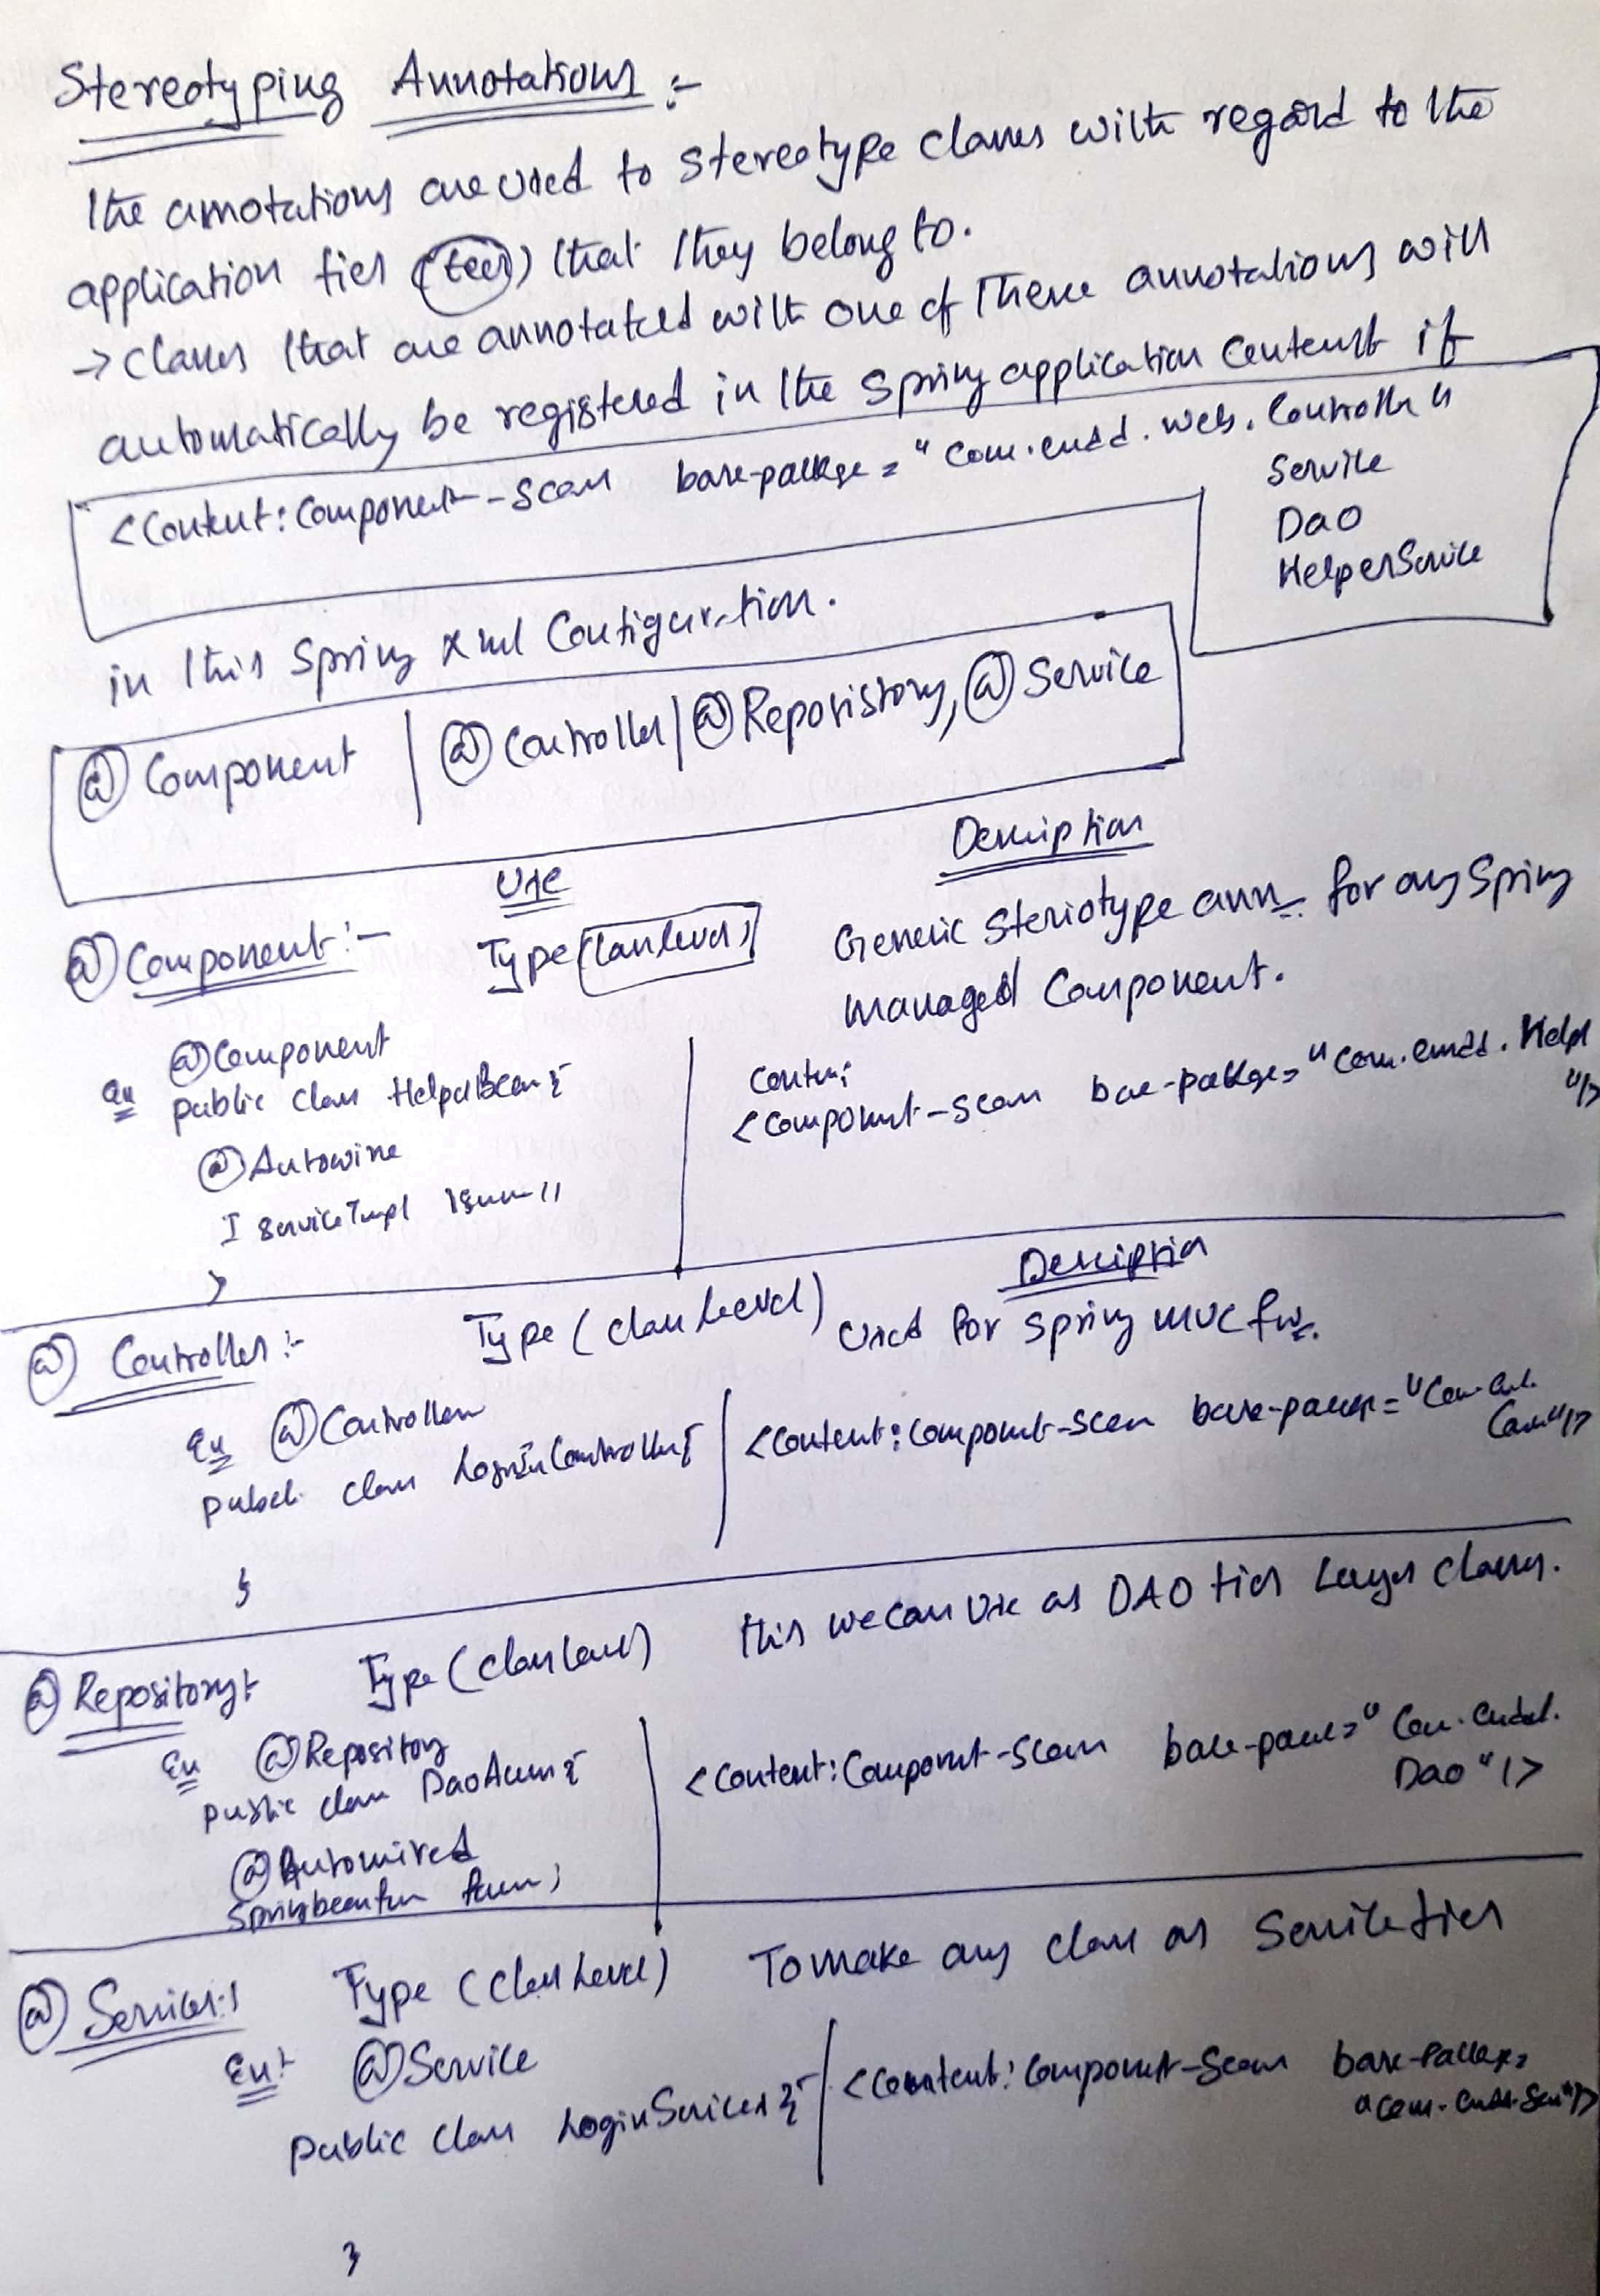 Stereotyping Annotations :-
The annotations are used to stereotype classes with regard to the
application tier (teir) that they belong to.
→ classes that are annotated with one of these annotations will
automatically be registered in the Spring application Context if
<Context:Component-Scan base-package="com.emdd.web.Controller"
Service
Dao
HelperService
in this Spring Xml Configuration.
@Component | @Controller | @Reposistory, @Service
Use Description
@Component:- Type(Class level) Generic Steriotype ann for any Spring
managed Component.
Ex @Component
public class HelperBean{
@Autowire
IserviceImpl
}
<Component-scan base-package="com.emdd.Help
"/>
@Controller:- Type (class Level) Description
Used for Spring MVC fw.
Ex @Controller
public class LoginController{
}
<Context:Component-Scan base-package="
"/>
@Repository:- Type (class level) this we can use as DAO tier Layer classes.
Ex @Repository
public class {
@Autowired
<Context:Component-Scan base-package="
Dao"/>
@Services:- Type (class Level) To make any class as Service tier
Ex:- @Service
public class LoginServices{
<Context:Component-Scan base-package=
}